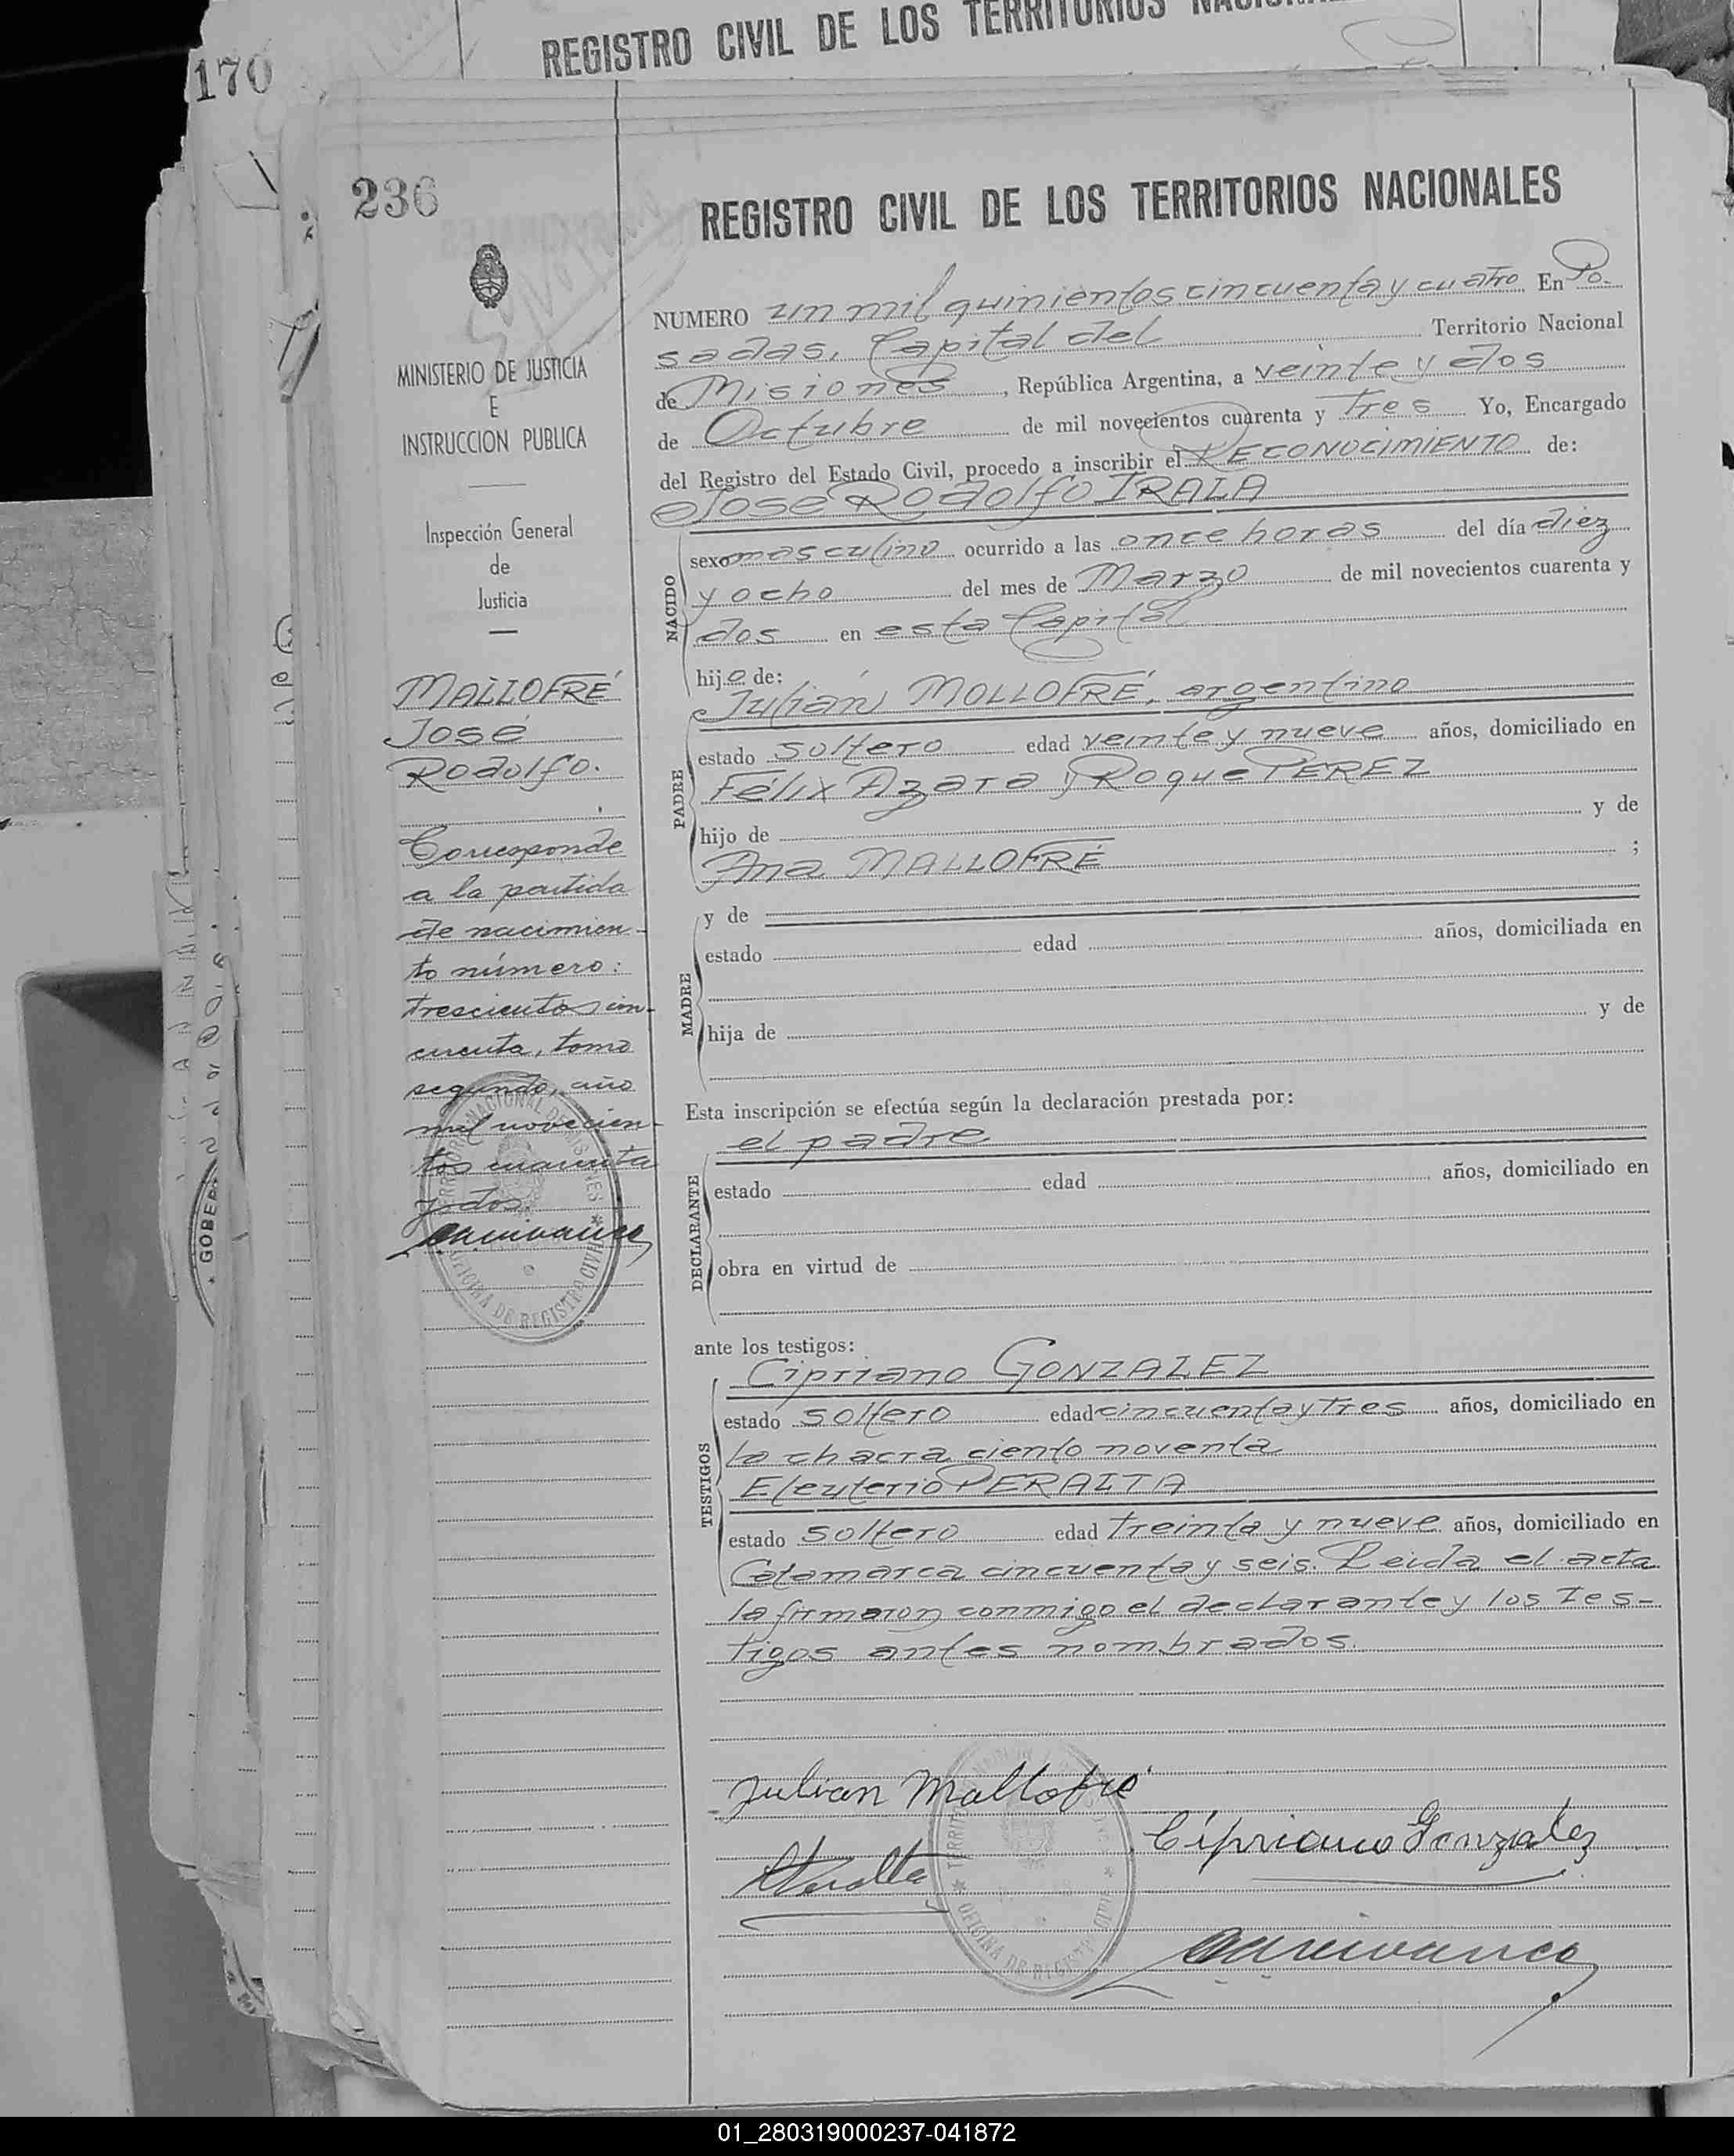 REGISTRO CIVIL DE LOS TERRITORIOS
170
236
REGISTRO CIVIL DE LOS TERRITORIOS NACIONALES
MINISTERIO DE JUSTICIA
E
INSTRUCCION PUBLICA
Inspección General
de
Justicia
MALLOFRÉ
José
Rodolfo.
Corresponde
a la partida
de nacimien-
to número:
trescientos cin-
cuenta, tomo
segundo, año
mil novecien-
tos cuarenta
y dos.
NUMERO un mil quinientos cincuenta y cuatro En Po-
sadas, Capital del Territorio Nacional
de Misiones, República Argentina, a veinte y dos
de Octubre de mil novecientos cuarenta y tres Yo, Encargado
del Registro del Estado Civil, procedo a inscribir el RECONOCIMIENTO de:
Jose Rodolfo IRALA
NACIDO
sexo masculino ocurrido a las once horas del día diez
y ocho del mes de Marzo de mil novecientos cuarenta y
dos en esta Capital
hijo de:
Julián MOLLOFRÉ, argentino
PADRE
estado soltero edad veinte y nueve años, domiciliado en
Félix Azara y Roque PEREZ
hijo de y de
Ana MALLOFRÉ ;
y de
MADRE
estado edad años, domiciliada en
hija de y de
Esta inscripción se efectúa según la declaración prestada por:
el padre
DECLARANTE
estado edad años, domiciliado en
obra en virtud de
ante los testigos:
Cipriano GONZALEZ
TESTIGOS
estado soltero edad cincuenta y tres años, domiciliado en
la chacra ciento noventa
Eleuterio PERALTA
estado soltero edad treinta y nueve años, domiciliado en
Catamarca cincuenta y seis. Leida el acta
la firmaron conmigo el declarante y los tes-
tigos antes nombrados.
Julian Mallofré
Cipriano Gonzalez
Peralta
OFICINA DE REGISTRO CIVIL
GOBER
01_280319000237-041872